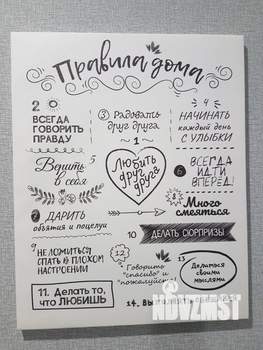 Правила дома
2
ВСЕГДА
ГОВОРИТЬ
ПРАВДУ
3 Радовать
друг друга
4
НАЧИНАТЬ
каждый день
С УЛЫБКИ
1
Любить
друг
друга
Верить 5
в себя
6 ВСЕГДА
ИДТИ
ВПЕРЕД!
7 ДАРИТЬ
объятия и поцелуи
8
Много
смеяться
10 ДЕЛАТЬ СЮРПРИЗЫ
9 НЕ ЛОЖИТЬСЯ
СПАТЬ В ПЛОХОМ
НАСТРОЕНИИ
12
Говорить
"спасибо" и
"пожалуйста"
13
Делиться
своими
мыслями
11. Делать то,
что ЛЮБИШЬ
14.
NDVZMST